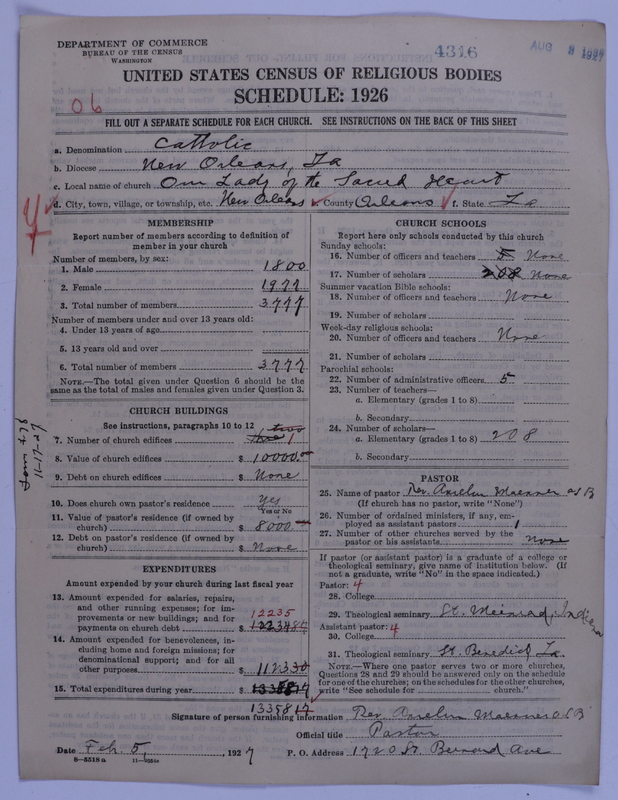 DEPARTMENT OF COMMERCE
BUREAU OF THE CENSUS
WASHINGTON
4316
AUG 1927
UNITED STATES CENSUS OF RELIGIOUS BODIES
SCHEDULE: 1926
06
FILL OUT A SEPARATE SCHEDULE FOR EACH CHURCH. SEE INSTRUCTIONS ON THE BACK OF THIS SHEET
a. Denomination Catholic
b. Diocese New Orleans, La
c. Local name of church Our Lady of the Sacred Heart
d. City, town, village, or township, etc. New Orleans County Orleans f. State La
MEMBERSHIP
Report number of members according to definition of
member in your church
Number of members, by sex:
1. Male 1800
2. Female 1977
3. Total number of members 3777
Number of members under and over 13 years old:
4. Under 13 years of age
5. 13 years old and over
6. Total number of members 3777
NOTE.—The total given under Question 6 should be the
same as the total of males and females given under Question 3.
CHURCH BUILDINGS
See instructions, paragraphs 10 to 12 two
7. Number of church edifices 1
8. Value of church edifices $ 10000.00
9. Debt on church edifices $ None
10. Does church own pastor's residence Yes
Yes or No
11. Value of pastor's residence (if owned by
church) $ 8000
12. Debt on pastor's residence (if owned by
church) $ None
EXPENDITURES
Amount expended by your church during last fiscal year
13. Amount expended for salaries, repairs,
and other running expenses; for im-
provements or new buildings; and for 12235
payments on church debt $
14. Amount expended for benevolences, in-
cluding home and foreign missions; for
denominational support; and for all
other purposes $ 112330
15. Total expenditures during year $
1335817
CHURCH SCHOOLS
Report here only schools conducted by this church
Sunday schools:
16. Number of officers and teachers 5 None
17. Number of scholars 208 None
Summer vacation Bible schools:
18. Number of officers and teachers None
19. Number of scholars
Week-day religious schools:
20. Number of officers and teachers None
21. Number of scholars
Parochial schools:
22. Number of administrative officers 5
23. Number of teachers—
a. Elementary (grades 1 to 8)
b. Secondary
24. Number of scholars—
a. Elementary (grades 1 to 8) 208
b. Secondary
PASTOR
25. Name of pastor Rev. Anselm Maenner OSB
(If church has no pastor, write "None")
26. Number of ordained ministers, if any, em-
ployed as assistant pastors 1
27. Number of other churches served by the
pastor or his assistants None
If pastor (or assistant pastor) is a graduate of a college or
theological seminary, give name of institution below. (If
not a graduate, write "No" in the space indicated.)
Pastor: 4
28. College
29. Theological seminary St. Meinrad, Indiana
Assistant pastor: 4
30. College
31. Theological seminary St. Benedict La.
NOTE.—Where one pastor serves two or more churches,
Questions 28 and 29 should be answered only on the schedule
for one of the churches; on the schedules for the other churches,
write "See schedule for church."
Signature of person furnishing information Rev. Anselm Maenner O.S.B
Official title Pastor
Date Feb. 5, 1927 P. O. Address 1720 St. Bernard Ave
8—5518 a
11-17-27